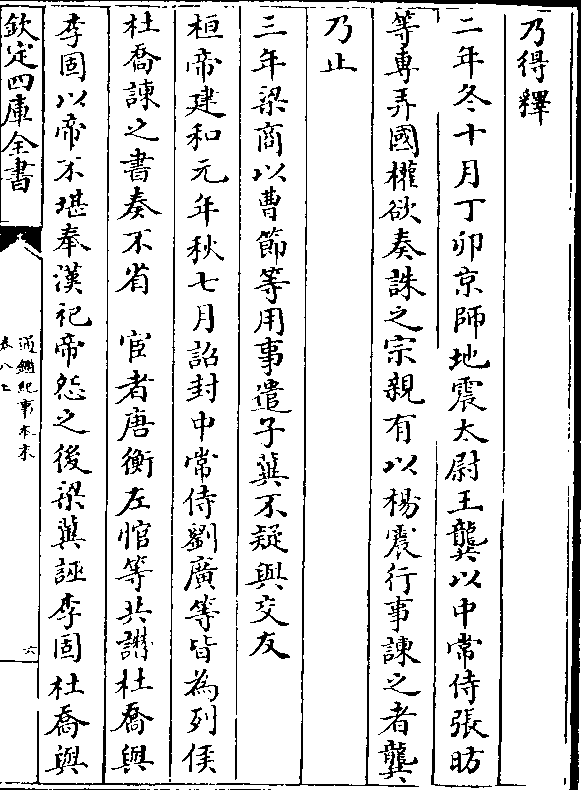 乃得釋
二年冬十月丁卯京師地震太尉王龔以中常侍張昉
等專弄國權欲奏誅之宗親有以楊震行事諫之者龔
乃止
三年梁商以曹節等用事遣子冀不疑與交友
桓帝建和元年秋七月詔封中常侍劉廣等皆為列侯
杜喬諫之書奏不省　宦者唐衡左悺等共譖杜喬與
李固以帝不堪奉漢祀帝怨之後梁冀誣李固杜喬與
欽定四庫全書
通鑑紀事本末
卷八上
六